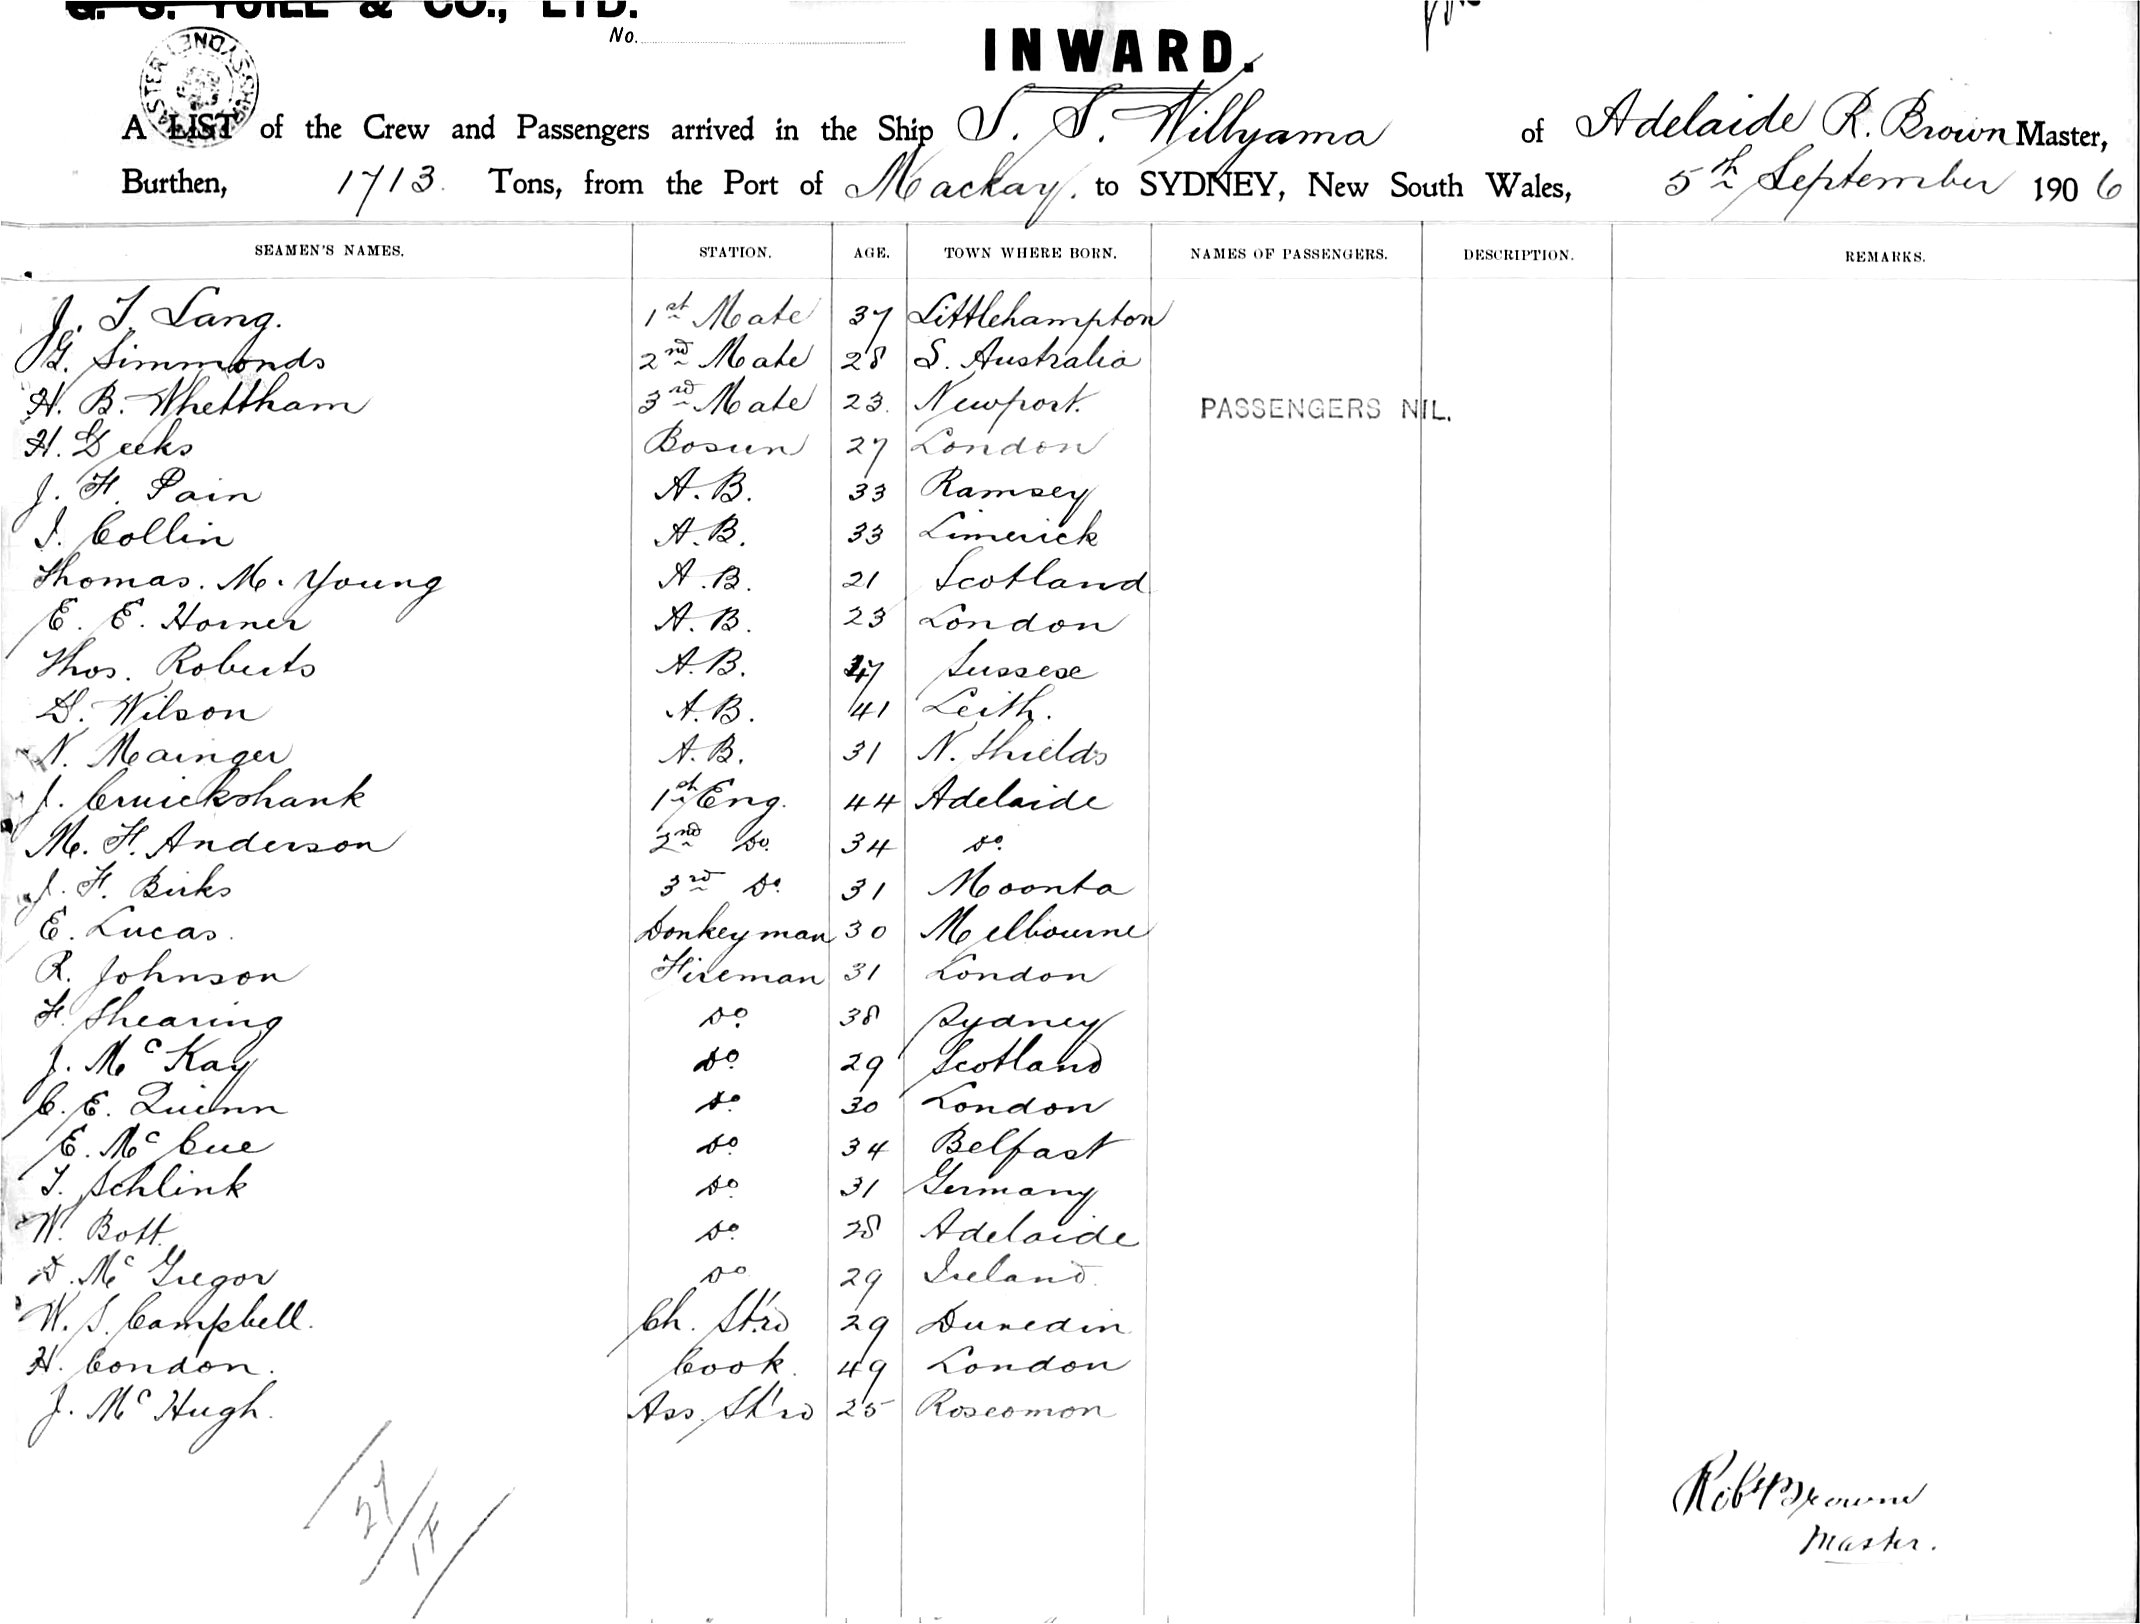 G. S. YUILL & CO., LTD.
No.
INWARD.
A LIST of the Crew and Passengers arrived in the Ship S. S. Willyama of Adelaide R. Brown Master,
Burthen, 1713 Tons, from the Port of Mackay. to SYDNEY, New South Wales, 5th September 1906
SEAMEN'S NAMES. STATION. AGE. TOWN WHERE BORN. NAMES OF PASSENGERS. DESCRIPTION. REMARKS.
J. T. Lang. 1st Mate 37 Littlehampton
G. Simmonds 2nd Mate 28 S. Australia
H. B. Whettham 3rd Mate 23. Newport.
PASSENGERS NIL.
H. Geeks Bosun 27 London
J. H. Pain A.B. 33 Ramsey
J. Collin A.B. 33 Limerick
Thomas. M. Young A.B. 21 Scotland
E. E. Horner A.B. 23 London
Thos. Roberts A.B. Sussex
D. Wilson A.B. 41 Leith.
N. Mainger A.B. 31 N. Shields
J. Cruickshank 1st Eng. 44 Adelaide
M. H. Anderson 2nd Do. 34 Do.
J. H. Birks 3rd Do. 31 Moonta
E. Lucas. Donkeyman 30 Melbourne
R. Johnson Fireman 31 London
H. Shearing Do. 38 Sydney
J. McKay Do. 29 Scotland
C. E. Quinn Do. 30 London
E. McCue Do. 34 Belfast
T. Schlink Do. 31 Germany
W. Bott. Do. 28 Adelaide
D. McGregor Do 29 Ireland.
W. S. Campbell. Ch. St'rd 29 Dunedin
H. Condon. Cook. 49 London
J. McHugh. Ass. St'rd 25 Roscomon
27
Robt Browne
Master.